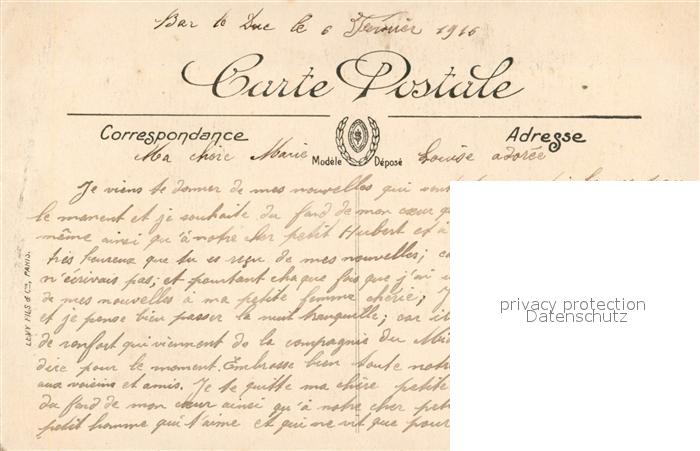 Bar le Duc le 6 Février 1916
Carte Postale
Correspondance
Adresse
Ma chère Marie Louise adorée
Modèle Déposé
Je viens te donner de mes nouvelles qui sont
le moment et je souhaite du fond de mon cœur
même ainsi qu'à notre cher petit Hubert et à
très heureux que tu es reçu de mes nouvelles; ca
n'écrivais pas; et pourtant chaque fois que j'ai
de mes nouvelles à ma petite femme chérie; J
et je pense bien passer la nuit tranquille; car il
de renfort qui viennent de la compagnie du Midi
dire pour le moment. Embrasse bien toute notre
aux voisins et amis. Je te quitte ma chère petite
du fond de mon cœur ainsi qu'à notre cher pet
petit homme qui t'aime et qui ne vit que pour
LEVY FILS & Cie, PARIS.
privacy protection
Datenschutz